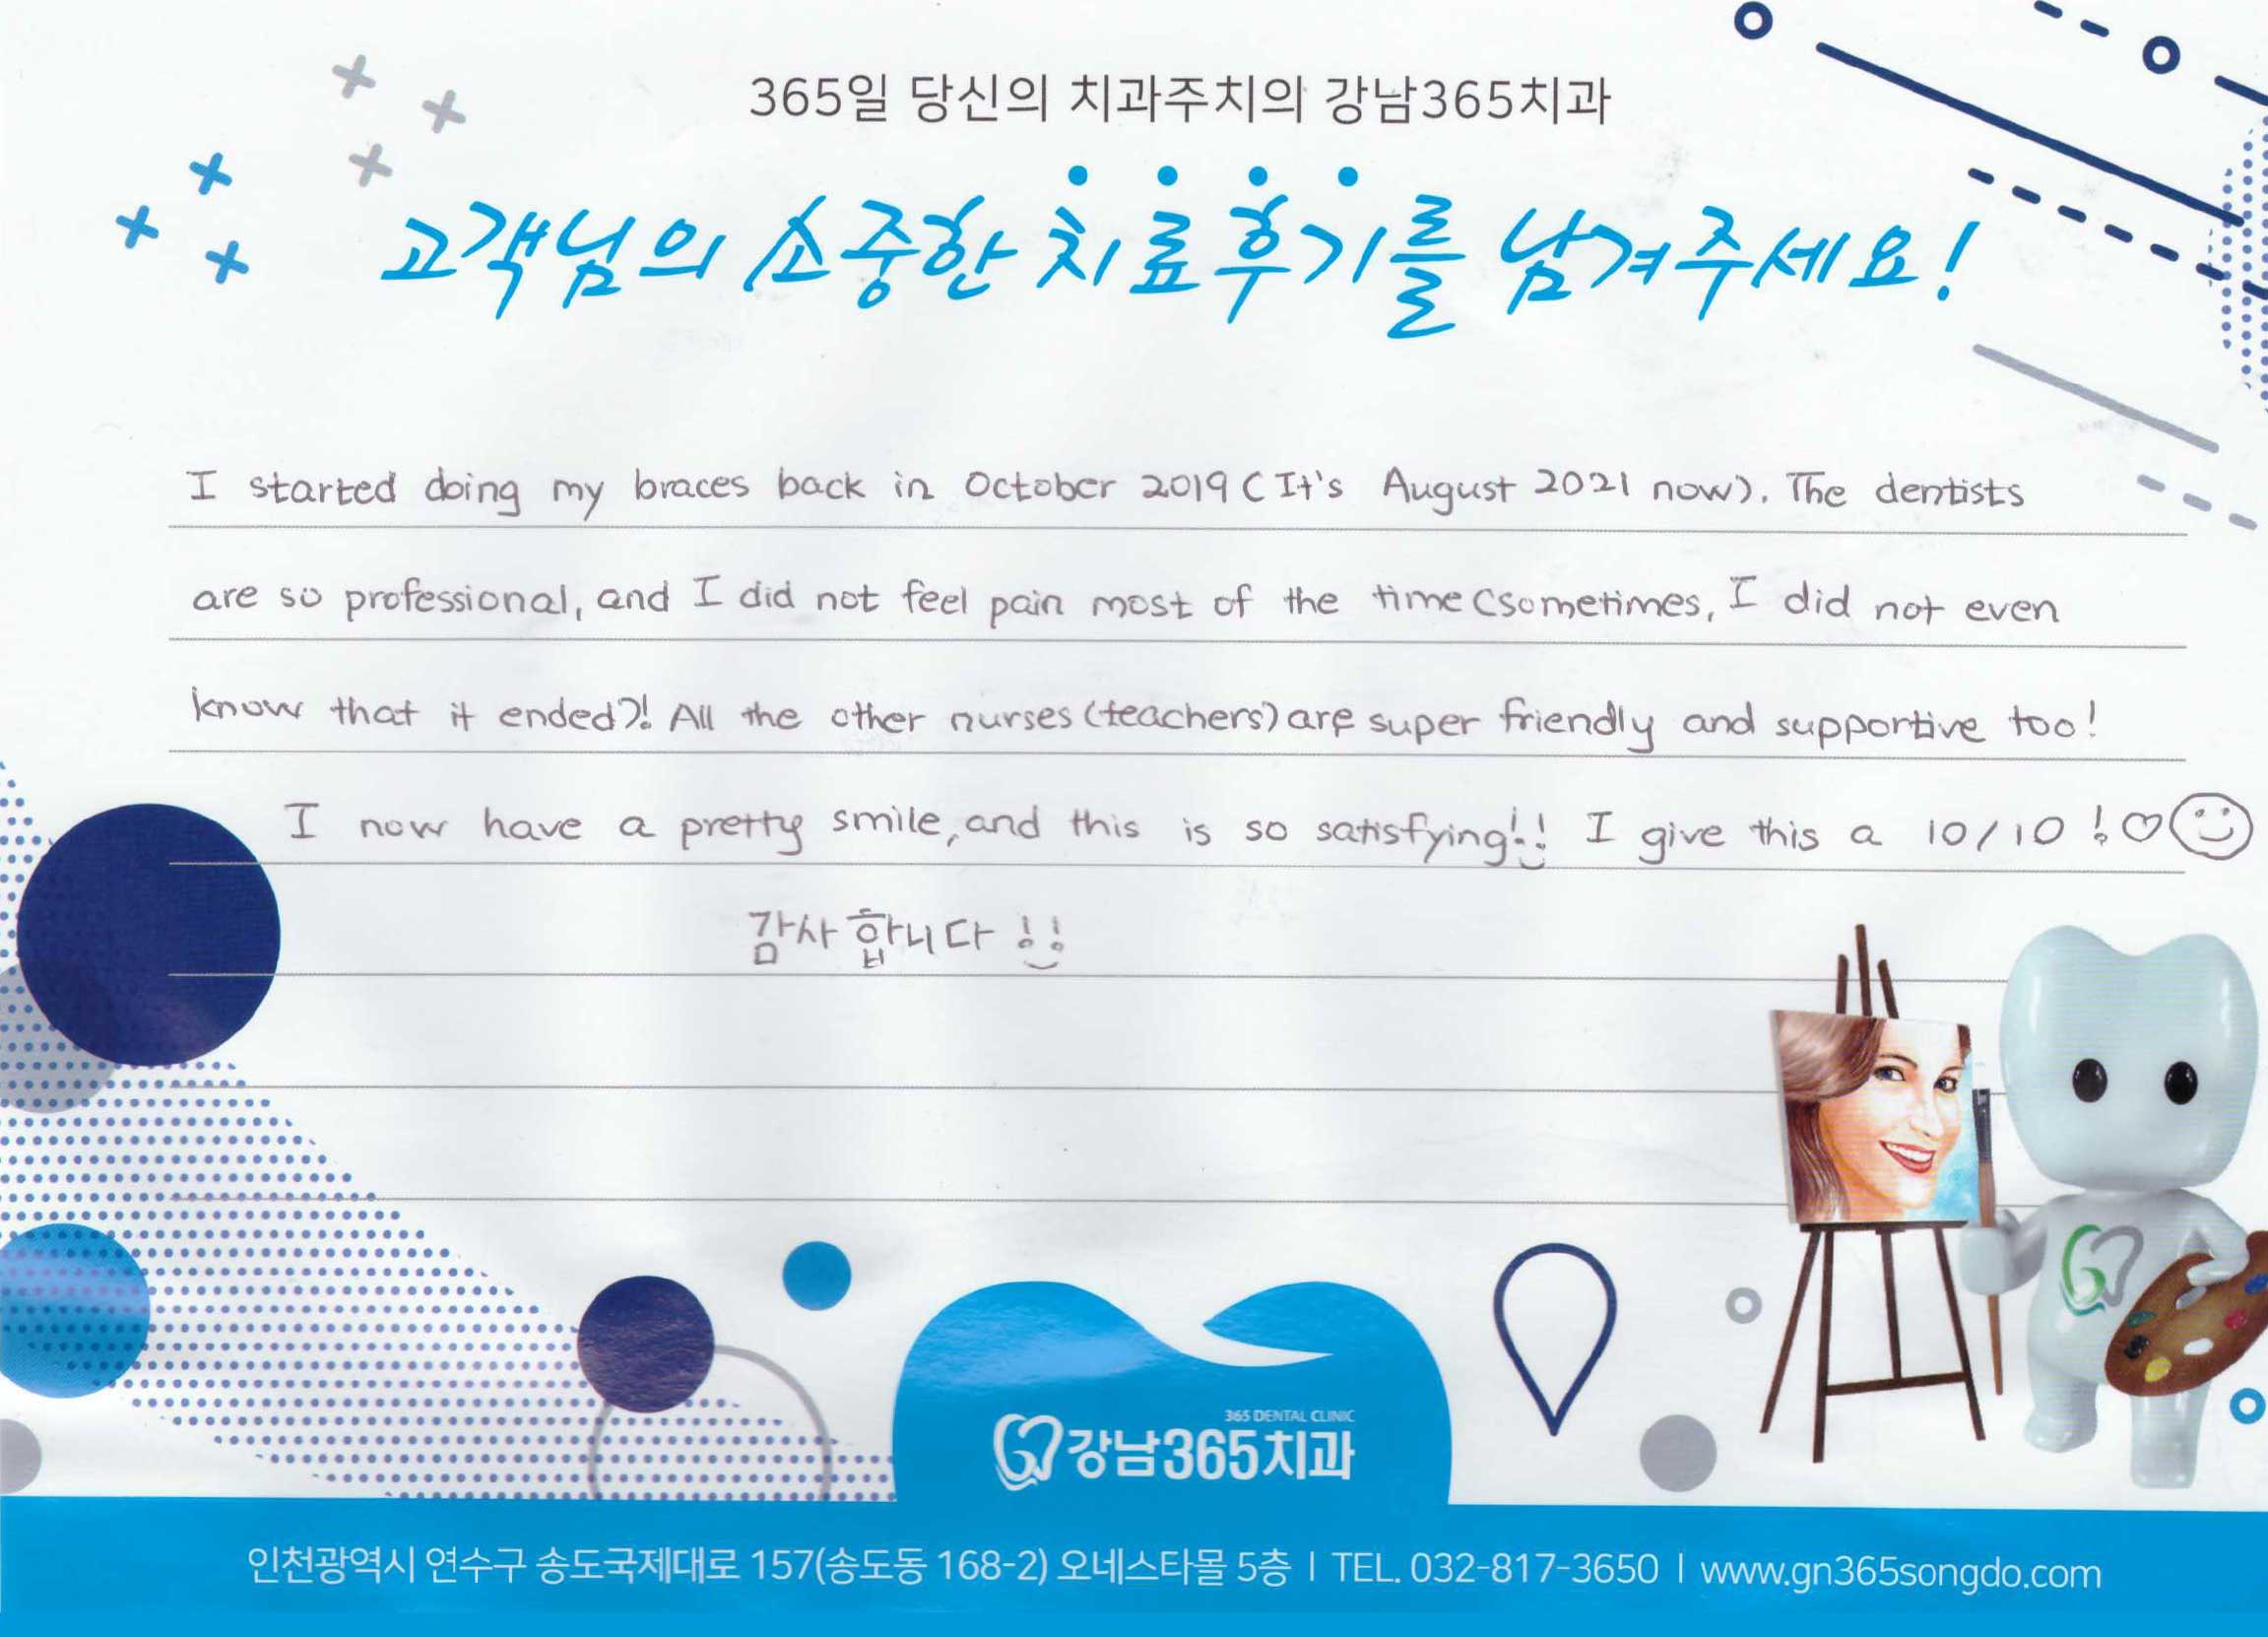 365일 당신의 치과주치의 강남365치과
고객님의 소중한 치료후기를 남겨주세요!
I started doing my braces back in October 2019 ( It's August 2021 now). The dentists
are so professional, and I did not feel pain most of the time (sometimes, I did not even
know that it ended?! All the other nurses (teachers) are super friendly and supportive too!
I now have a pretty smile, and this is so satisfying!! I give this a 10/10 !♡☺
감사합니다 !!
365 DENTAL CLINIC
강남365치과
인천광역시 연수구 송도국제대로 157(송도동 168-2) 오네스타몰 5층 l TEL. 032-817-3650 l www.gn365songdo.com